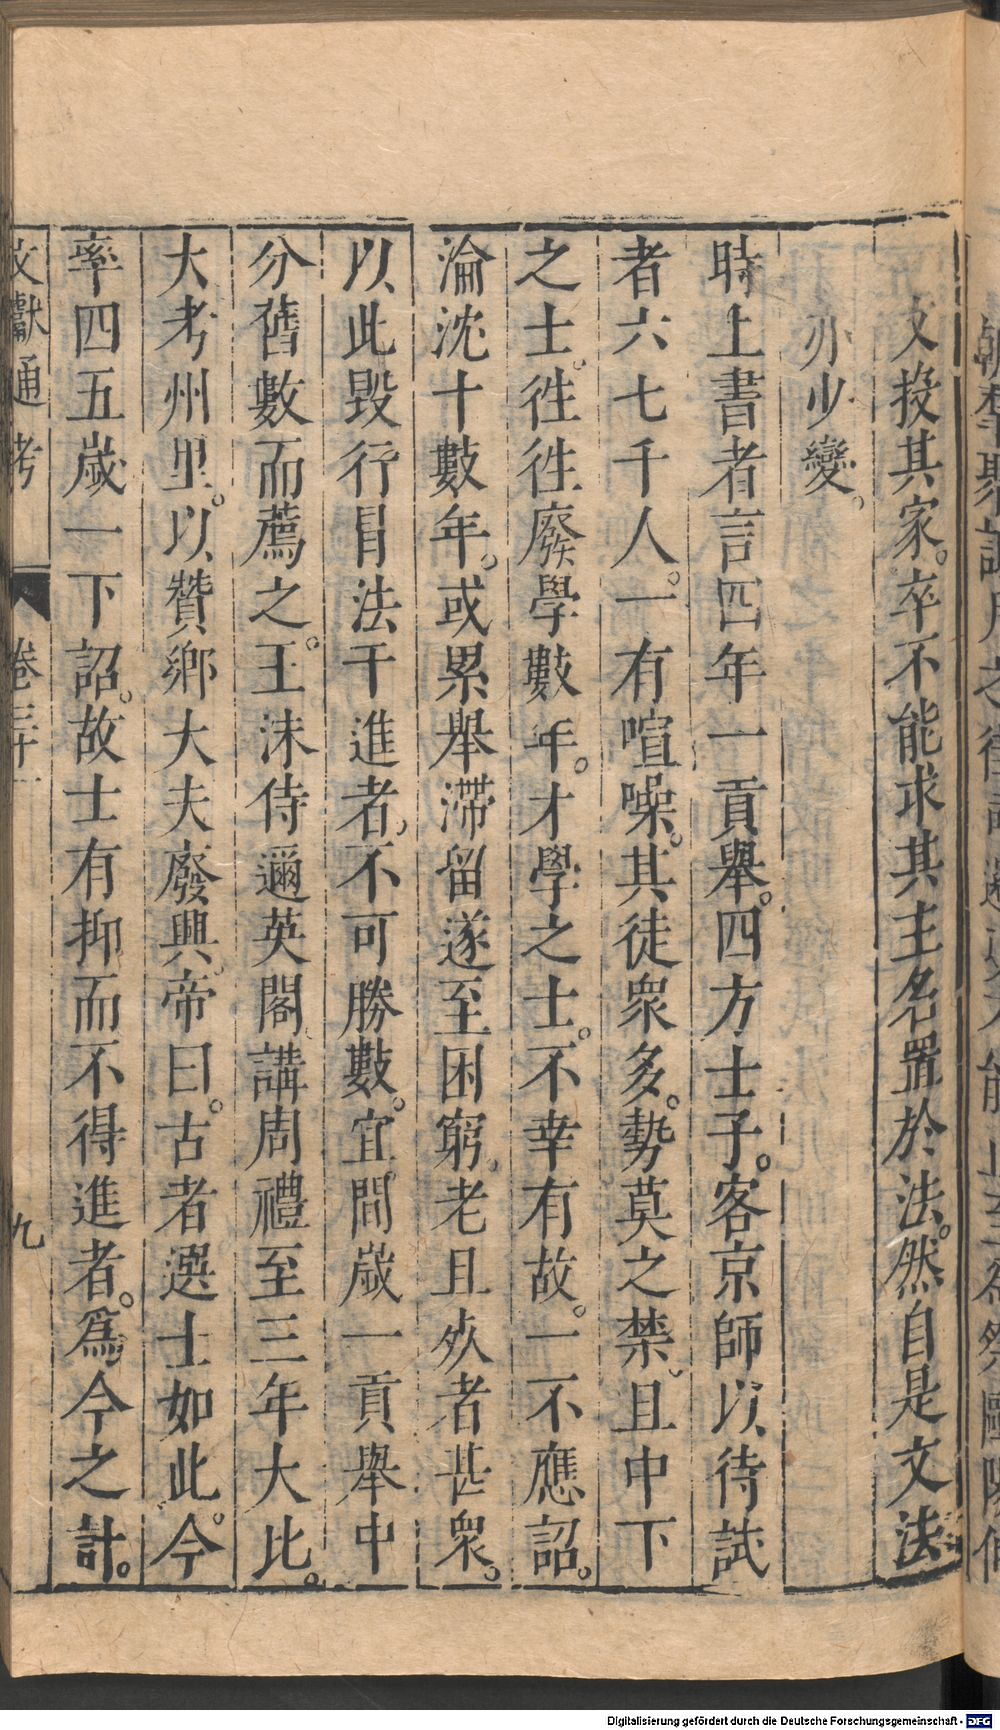 文投其家。卒不能求其主名置於法。然自是文法
亦少變。
時上書者言四年一貢舉。四方士子。客京師以待試
者六七千人。一有喧噪。其徒衆多。勢莫之禁。且中下
之士。徃徃廢學數年。才學之士。不幸有故。一不應詔。
淪沈十數年。或累舉滯留遂至困窮。老且死者甚衆。
以此毀行冒法干進者、不可勝數。宜間歲一貢舉中
分舊數而薦之。王洙侍邇英閣講周禮至三年大比。
大考州里。以贊鄉大夫廢興。帝曰。古者選士如此。今
率四五歲一下詔。故士有抑而不得進者。爲今之計。
文獻通考
卷三十一
九
Digitalisierung gefördert durch die Deutsche Forschungsgemeinschaft - DFG